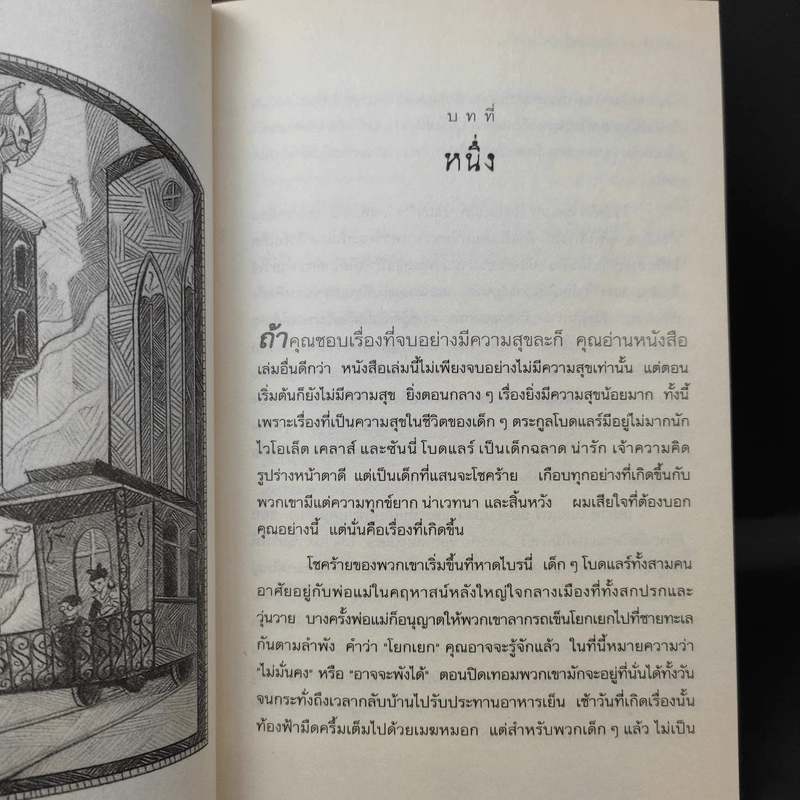 บทที่
หนึ่ง
ถ้าคุณชอบเรื่องที่จบอย่างมีความสุขละก็ คุณอ่านหนังสือ
เล่มอื่นดีกว่า หนังสือเล่มนี้ไม่เพียงจบอย่างไม่มีความสุขเท่านั้น แต่ตอน
เริ่มต้นก็ยังไม่มีความสุข ยิ่งตอนกลาง ๆ เรื่องยิ่งมีความสุขน้อยมาก ทั้งนี้
เพราะเรื่องที่เป็นความสุขในชีวิตของเด็ก ๆ ตระกูลโบดแลร์มีอยู่ไม่มากนัก
ไวโอเล็ต เคลาส์ และซันนี่ โบดแลร์ เป็นเด็กฉลาด น่ารัก เจ้าความคิด
รูปร่างหน้าตาดี แต่เป็นเด็กที่แสนจะโชคร้าย เกือบทุกอย่างที่เกิดขึ้นกับ
พวกเขามีแต่ความทุกข์ยาก น่าเวทนา และสิ้นหวัง ผมเสียใจที่ต้องบอก
คุณอย่างนี้ แต่นั่นคือเรื่องที่เกิดขึ้น
โชคร้ายของพวกเขาเริ่มขึ้นที่หาดไบรนี่ เด็ก ๆ โบดแลร์ทั้งสามคน
อาศัยอยู่กับพ่อแม่ในคฤหาสน์หลังใหญ่ใจกลางเมืองที่ทั้งสกปรกและ
วุ่นวาย บางครั้งพ่อแม่ก็อนุญาตให้พวกเขาลากรถเข็นโยกเยกไปที่ชายทะเล
กันตามลำพัง คำว่า "โยกเยก" คุณอาจจะรู้จักแล้ว ในที่นี้หมายความว่า
"ไม่มั่นคง" หรือ "อาจจะพังได้" ตอนปิดเทอมพวกเขามักจะอยู่ที่นั่นได้ทั้งวัน
จนกระทั่งถึงเวลากลับบ้านไปรับประทานอาหารเย็น เช้าวันที่เกิดเรื่องนั้น
ท้องฟ้ามืดครึ้มเต็มไปด้วยเมฆหมอก แต่สำหรับพวกเด็ก ๆ แล้ว ไม่เป็น